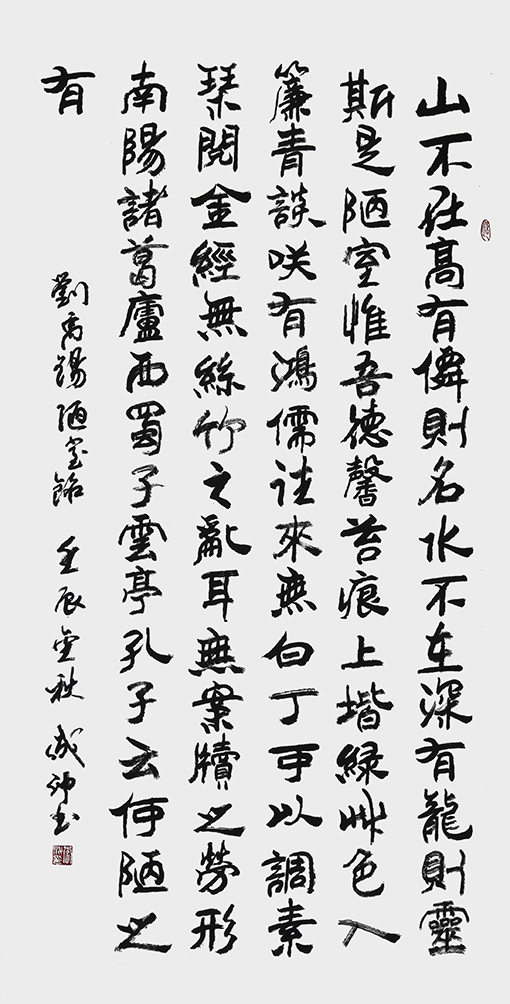 山不在髙有僊則名水不在深有龍則靈
斯是陋室惟吾德馨苔痕上堦緑艸色入
簾青談咲有鴻儒往來無白丁可以調素
琹閱金經無絲竹之亂耳無案牘之勞形
南陽諸葛廬西蜀子雲亭孔子云何陋之
有
劉禹錫陋室銘 壬辰金秋 成坤书